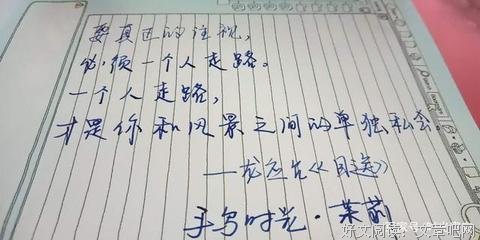 要真正的注视,
必须一个人走路。
一个人走路,
才是你和风景之间的单独私会。
——龙应台《目送》
手写时光·茉莉
好文阅读:文章吧网